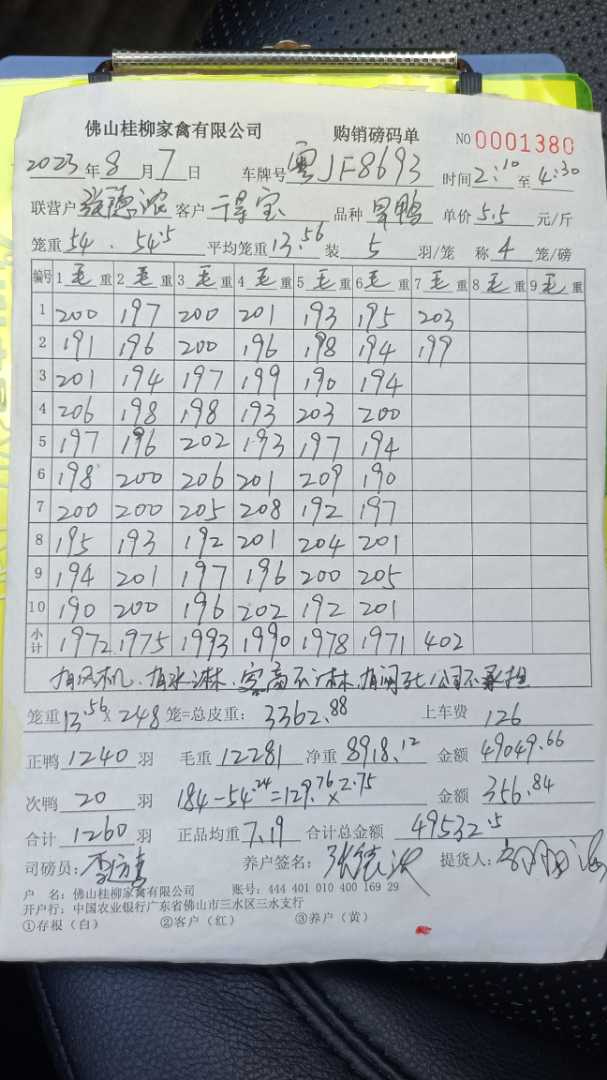 佛山桂柳家禽有限公司 购销磅码单 NO 0001380
2023年8月7日 车牌号 粤JF8693 时间2:10至4:30
联营户 张德浓 客户 千得宝 品种 旱鸭 单价 5.5 元/斤
笼重 54 . 54.5 平均笼重 13.56 装 5 羽/笼 称 4 笼/磅
编号 1 毛 重 2 毛 重 3 毛 重 4 毛 重 5 毛 重 6 毛 重 7 毛 重 8 毛 重 9 毛 重
1 200 197 200 201 193 195 203
2 191 196 200 196 198 194 199
3 201 194 197 199 190 194
4 206 198 198 193 203 200
5 197 196 202 193 197 194
6 198 200 206 201 209 190
7 200 200 205 208 192 197
8 195 193 192 201 204 201
9 194 201 197 196 200 205
10 190 200 196 202 192 201
小计 1972 1975 1993 1990 1978 1971 402
有风机、有水淋、客商不淋、有闷死公司不承担
笼重 13.56 x 248 笼=总皮重: 3362.88 上车费 126
正鸭 1240 羽 毛重 12281 净重 8918.12 金额 49049.66
次鸭 20 羽 184-54.24=129.76x2.75 金额 356.84
合计 1260 羽 正品均重 7.19 合计总金额 49532.5
司磅员: 养户签名: 提货人:
户 名: 佛山桂柳家禽有限公司 账号: 444 401 010 400 169 29
开户行: 中国农业银行广东省佛山市三水区三水支行
①存根（白） ②客户（红） ③养户（黄）